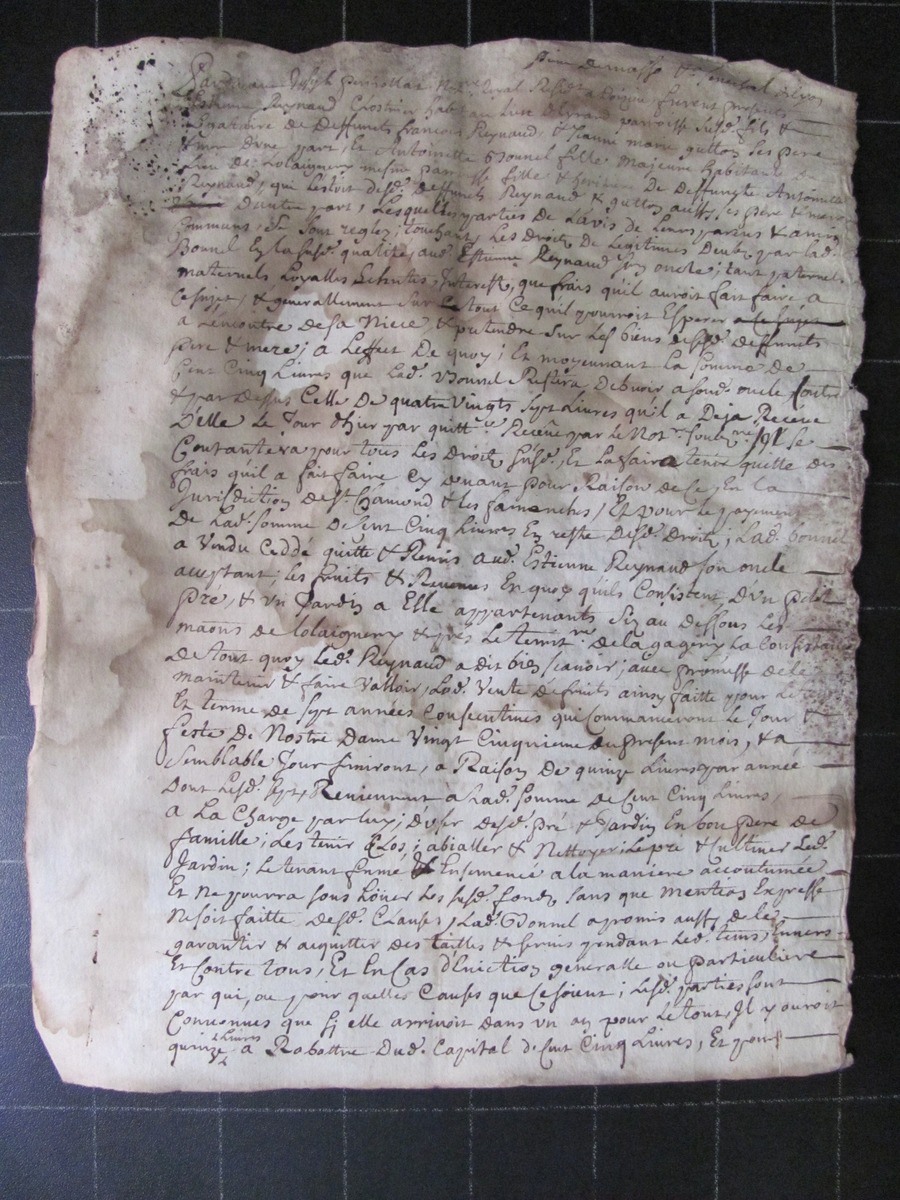 Pardevant Joseph Not.re Royal furent presents
Estienne Reynaud au lieu parroisse susd. fils &
de deffunts francois Reynaud, & Jeanne marie guttoz ses pere
& mere d'une part, Et Antoinette Bonnel fille majeure habitante
Lieu de Lolaigniery mesme fille & heritiere De deffuncte Antoinette
Reynaud, qui Lestoit desd. deffunts Reynaud & guttoz aussy ses pere & mere
D'autre part, Lesquelles parties de Lavis de Leurs parens & amis
Communs, Se sont reglez, touchant Les Droits de Legitimes Deubs par lad.
Bonnel En la susd. qualité, aud. Estienne Reynaud son oncle; tant paternels
maternels Interests, que frais qu'il auroit fait faire a
Ce sujet, & generallement sur le tout Ce qu'il pourroit Esperer a Ce sujet
a Lencontre de sa Niece, & pretendre sur Les biens desd. deffunts
pere & mere; a Leffect De quoy; Et moyennant La somme de
Cent Cinq Livres que Lad. Bonnel Restera Debvoir a sond. oncle outre
& par dessus Celle De quatre vingts sept Livres qu'il a Deja Receue
D'elle Le Jour d'huy par quitt.ce Receue par le Not.re soub.né Il se
Contantera pour tous Les Droits susd. Et La faira tenir quitte des
frais qu'il a fait faire Cy devant pour Raison de Ce, En La
Jurisdiction de St. Chamond & les famenches, Et pour le payement
De Lad. somme De Cent Cinq Livres En reste Desd. Droits, Lad. bonnel
a Vendu Ceddé quitté & Remis aud. Estienne Reynaud son oncle
acceptant, les fruits & Revenus En quoy qu'ils Consistent D'un petit
pré, & un Jardin a Elle appartenants Siz au dessous Les
maions de Lolaigniery & pres Le territ.re De la gagery La Consistance
De tout quoy Led. Reynaud a dit bien scavoir; avec promesse de Le
maintenir & faire valloir, Lad. Vente de fruits ainsy faitte pour Le temps
Et terme de sept années Consecutives qui Commanceront Le Jour &
feste de Nostre Dame Vingt Cinquieme du present mois, & a
Semblable Jour finiront, a Raison De quinze Livres par année
Dont Lesd. sept, Reviennent a Lad. somme de Cent Cinq Livres,
a La Charge par luy, D'user desd. pré & Jardin En bon pere de
famille, Les tenir Clos, abialler & Nettoyer Le pre & Cultiver Led.
Jardin; Le tenant fumé & Ensemencé a la maniere accoutumée
Et Ne pourra sous Louer Les susd. fonds sans que mention Expresse
Ne soit faitte desd. Clauses, Lad. Bonnel a promis aussy de le
garantir & acquitter des tailles & servis pendant Led. tems, Envers
Et Contre tous, Et En Cas d'Eviction generalle ou particuliere
par qui, ou pour quelles Causes que Ce soient; Lesd. parties sont
Convenues que si elle arrivoit dans un an pour Le tout, Il y auroit
quinze Livres a Rabattre Dud. Capital de Cent Cinq Livres, Et pour